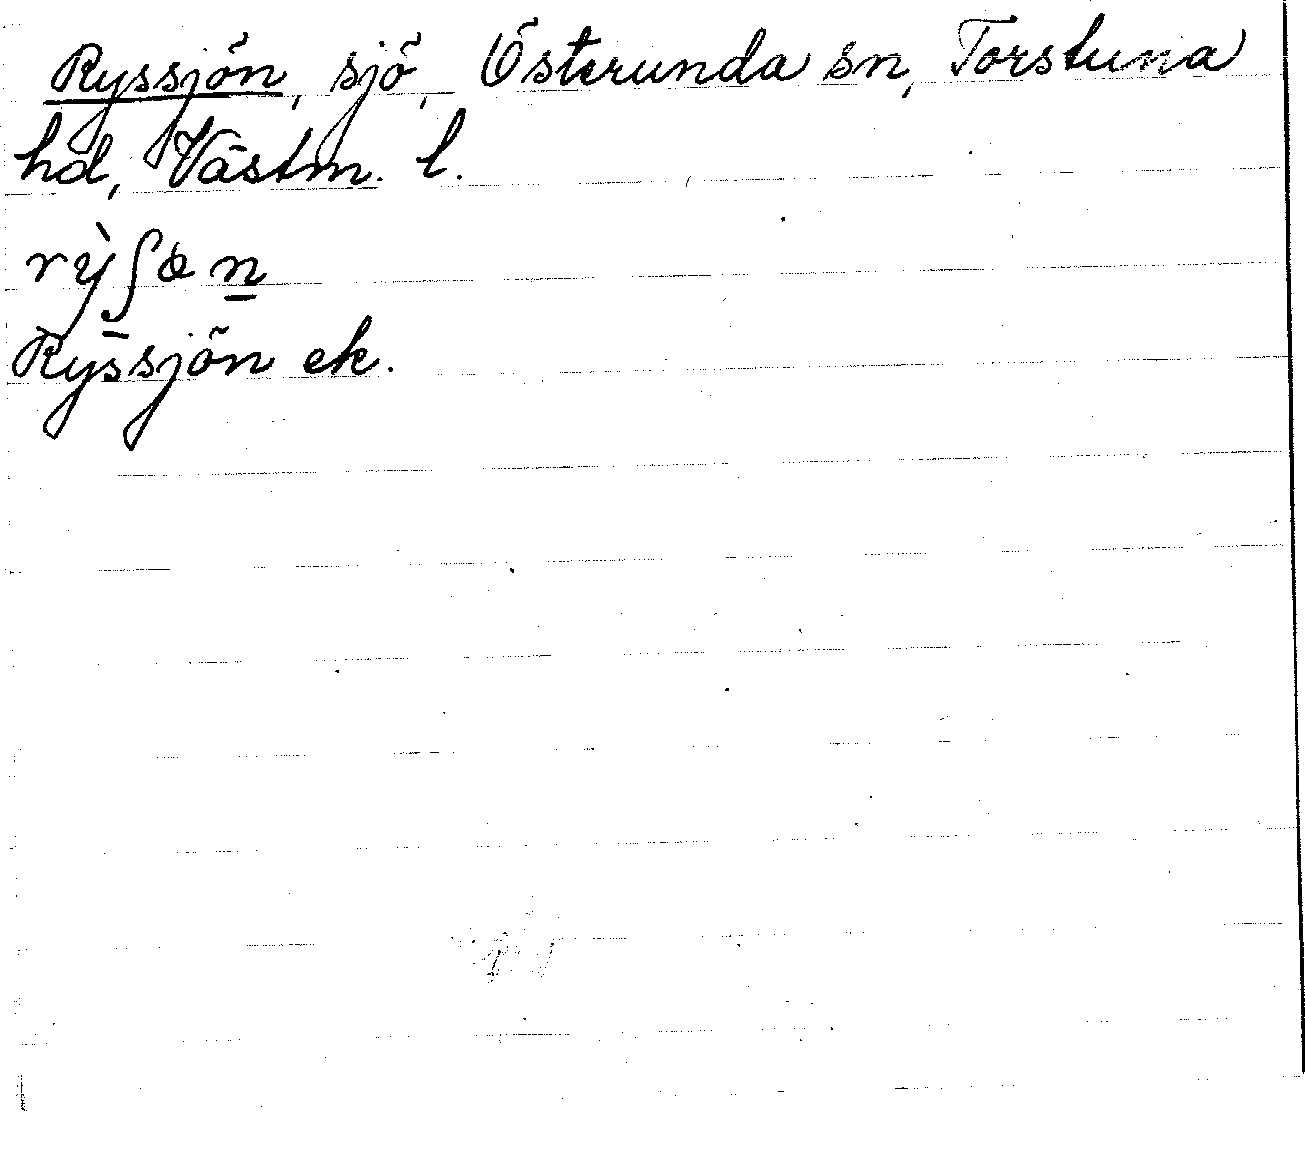 Ryssjön, sjö, Österunda sn, Torstuna
hd, Västm. l.
rỳʃɵn
Ryssjön ek.